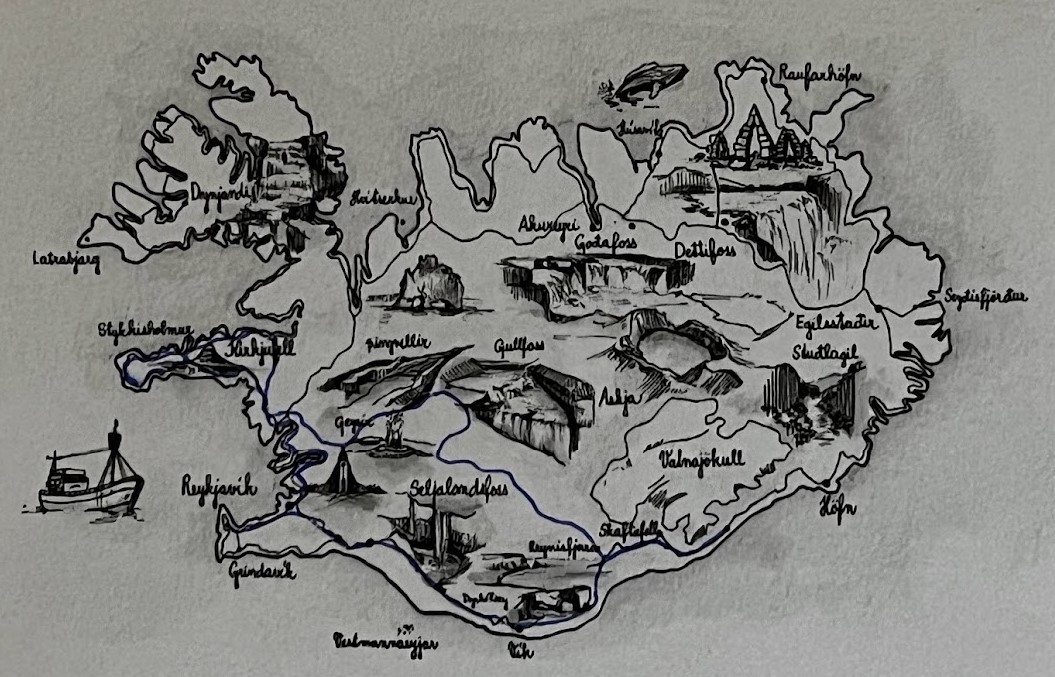 Raufarhöfn
Húsavík
Dynjandi
Hvítserkur
Akureyri
Godafoss
Dettifoss
Latrabjarg
Seydisfjördur
Egilsstadir
Stykkisholmur
Kirkjufell
Þingvellir
Gullfoss
Studlagil
Askja
Geysir
Vatnajökull
Reykjavik
Seljalandsfoss
Höfn
Skaftafell
Reynisfjara
Grindavik
Vestmannaeyjar
Vik